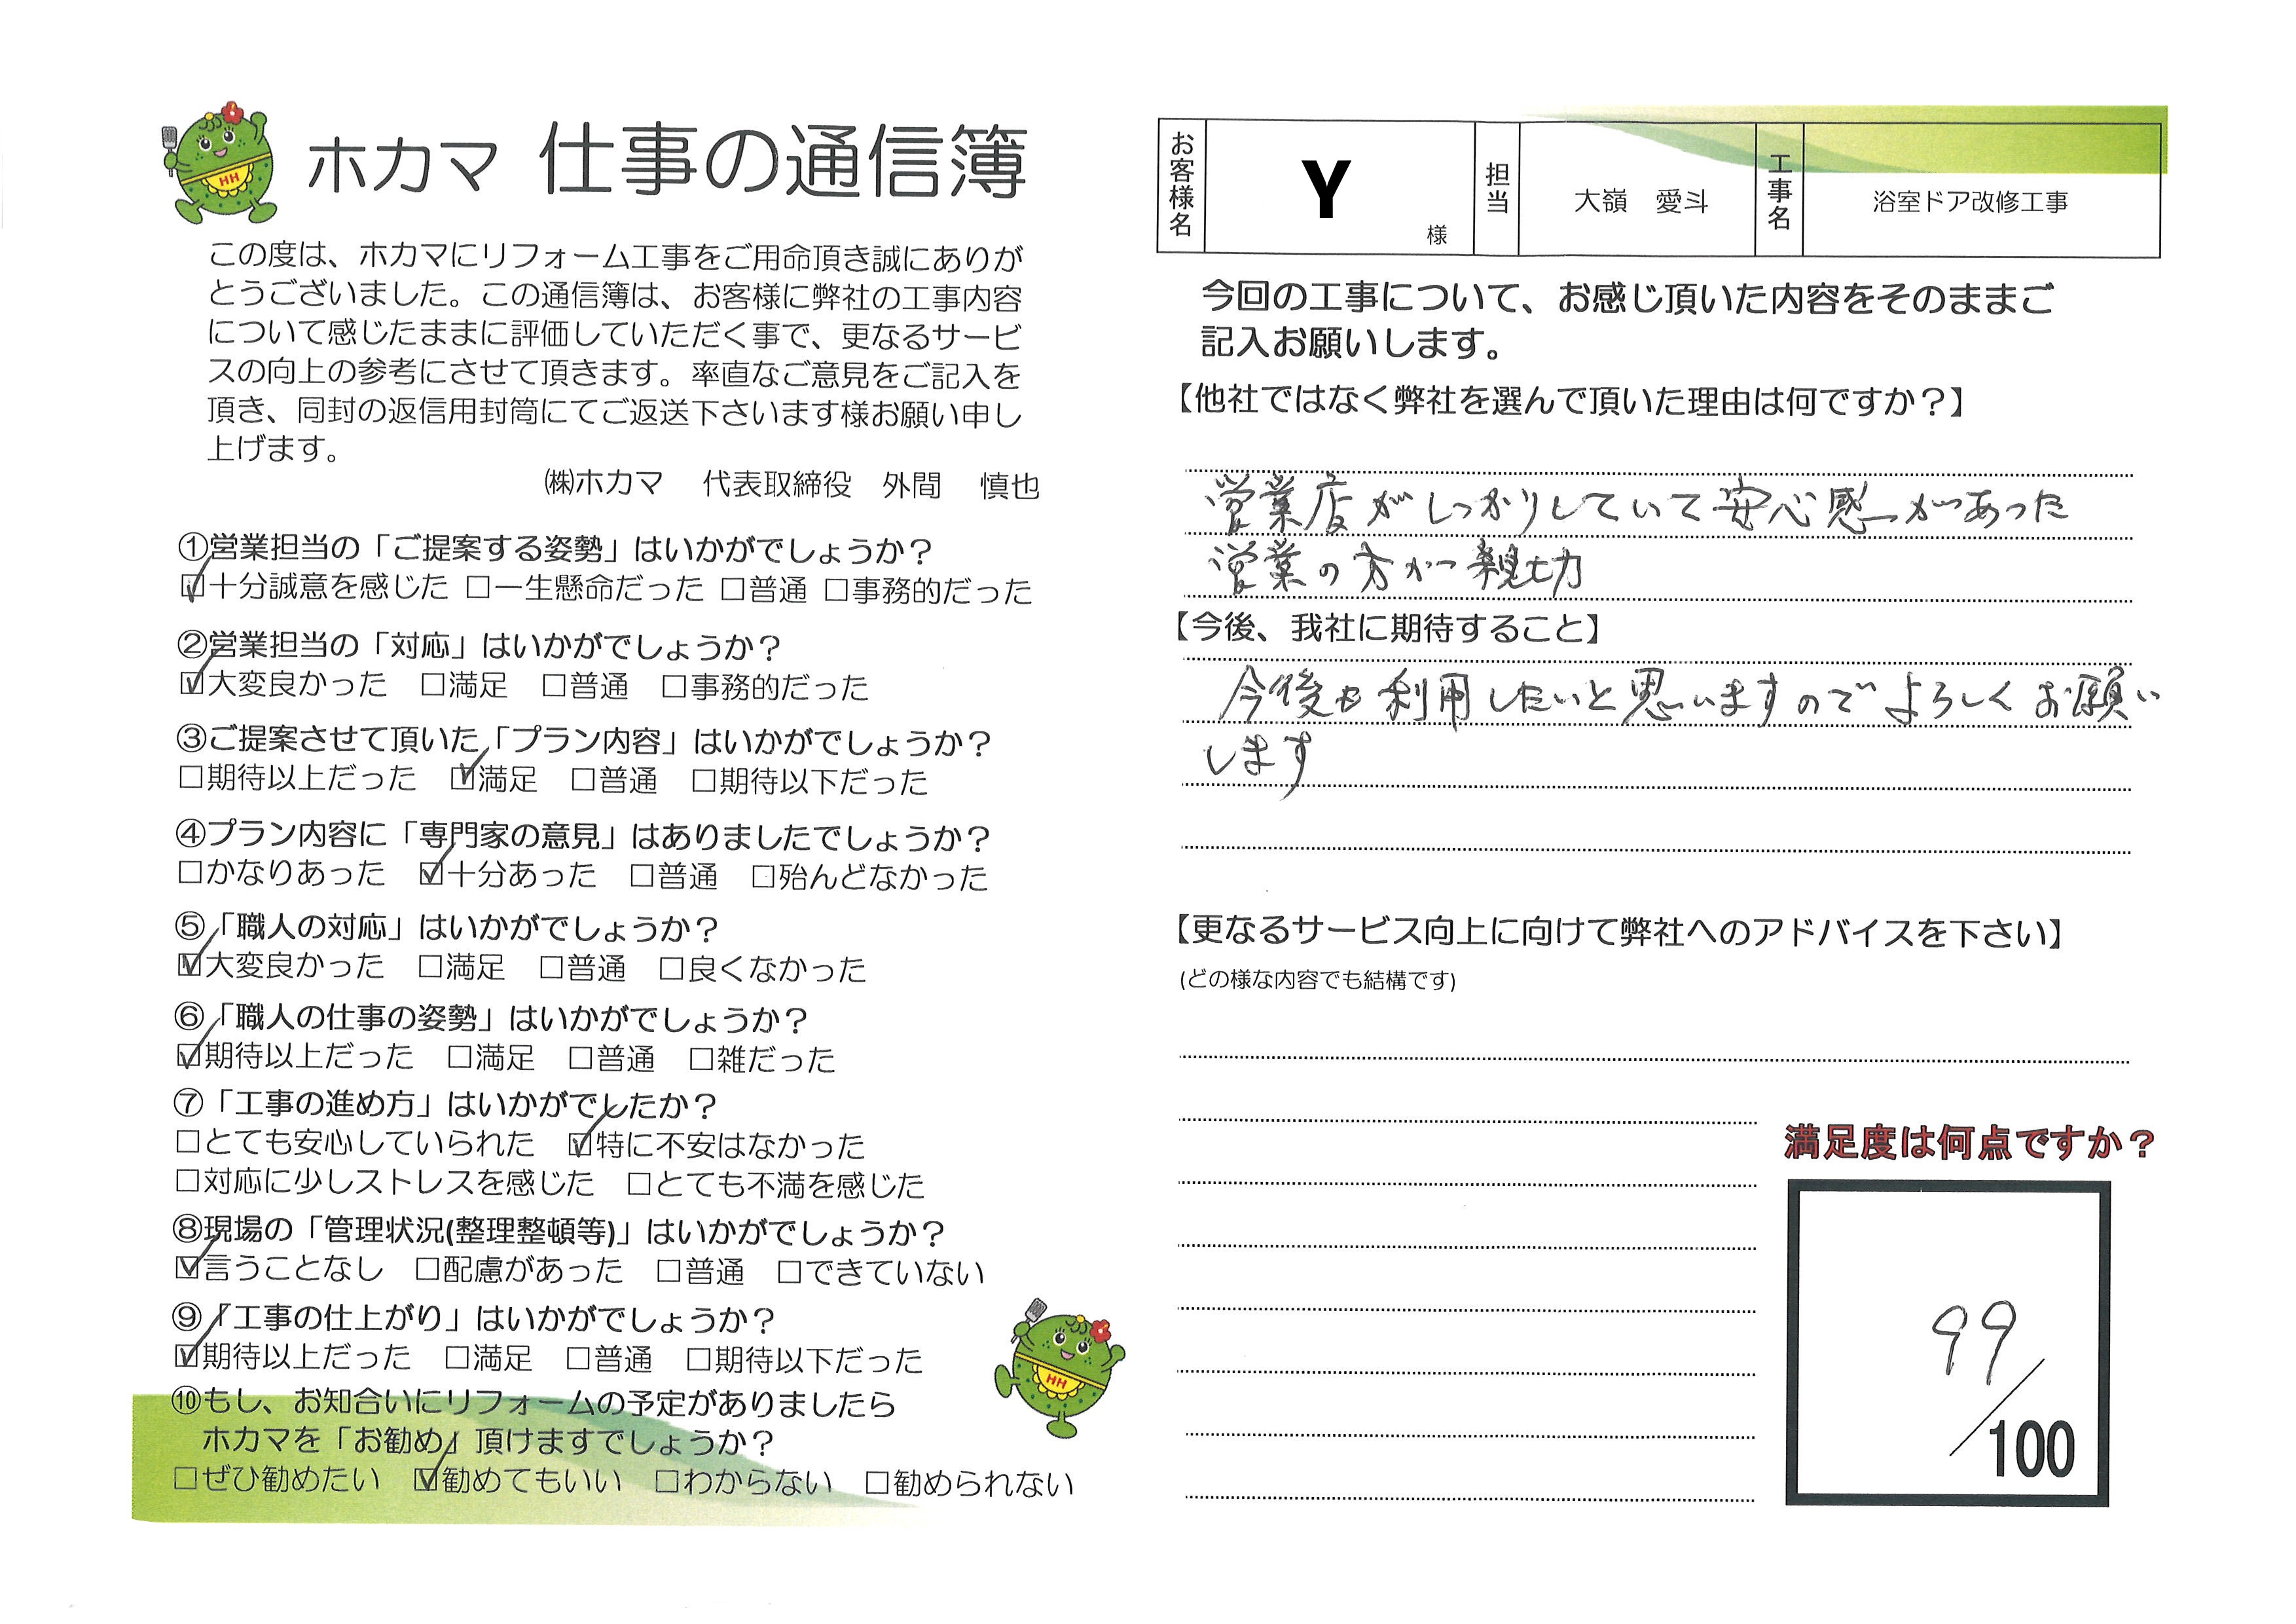 ホカマ 仕事の通信簿
この度は、ホカマにリフォーム工事をご用命頂き誠にありが
とうございました。この通信簿は、お客様に弊社の工事内容
について感じたままに評価していただく事で、更なるサービ
スの向上の参考にさせて頂きます。率直なご意見をご記入を
頂き、同封の返信用封筒にてご返送下さいます様お願い申し
上げます。
㈱ホカマ 代表取締役 外間 慎也
①営業担当の「ご提案する姿勢」はいかがでしょうか？
☑十分誠意を感じた □一生懸命だった □普通 □事務的だった
②営業担当の「対応」はいかがでしょうか？
☑大変良かった □満足 □普通 □事務的だった
③ご提案させて頂いた「プラン内容」はいかがでしょうか？
□期待以上だった ☑満足 □普通 □期待以下だった
④プラン内容に「専門家の意見」はありましたでしょうか？
□かなりあった ☑十分あった □普通 □殆んどなかった
⑤「職人の対応」はいかがでしょうか？
☑大変良かった □満足 □普通 □良くなかった
⑥「職人の仕事の姿勢」はいかがでしょうか？
☑期待以上だった □満足 □普通 □雑だった
⑦「工事の進め方」はいかがでしたか？
□とても安心していられた ☑特に不安はなかった
□対応に少しストレスを感じた □とても不満を感じた
⑧現場の「管理状況(整理整頓等)」はいかがでしょうか？
☑言うことなし □配慮があった □普通 □できていない
⑨「工事の仕上がり」はいかがでしょうか？
☑期待以上だった □満足 □普通 □期待以下だった
⑩もし、お知合いにリフォームの予定がありましたら
ホカマを「お勧め」頂けますでしょうか？
□ぜひ勧めたい ☑勧めてもいい □わからない □勧められない
HH
HH
お客様名 Y 様 担当 大嶺 愛斗 工事名 浴室ドア改修工事
今回の工事について、お感じ頂いた内容をそのままご
記入お願いします。
【他社ではなく弊社を選んで頂いた理由は何ですか？】
営業店がしっかりしていて安心感があった
営業の方が親切
【今後、我社に期待すること】
今後も利用したいと思いますのでよろしくお願い
します
【更なるサービス向上に向けて弊社へのアドバイスを下さい】
(どの様な内容でも結構です)
満足度は何点ですか？
99/100